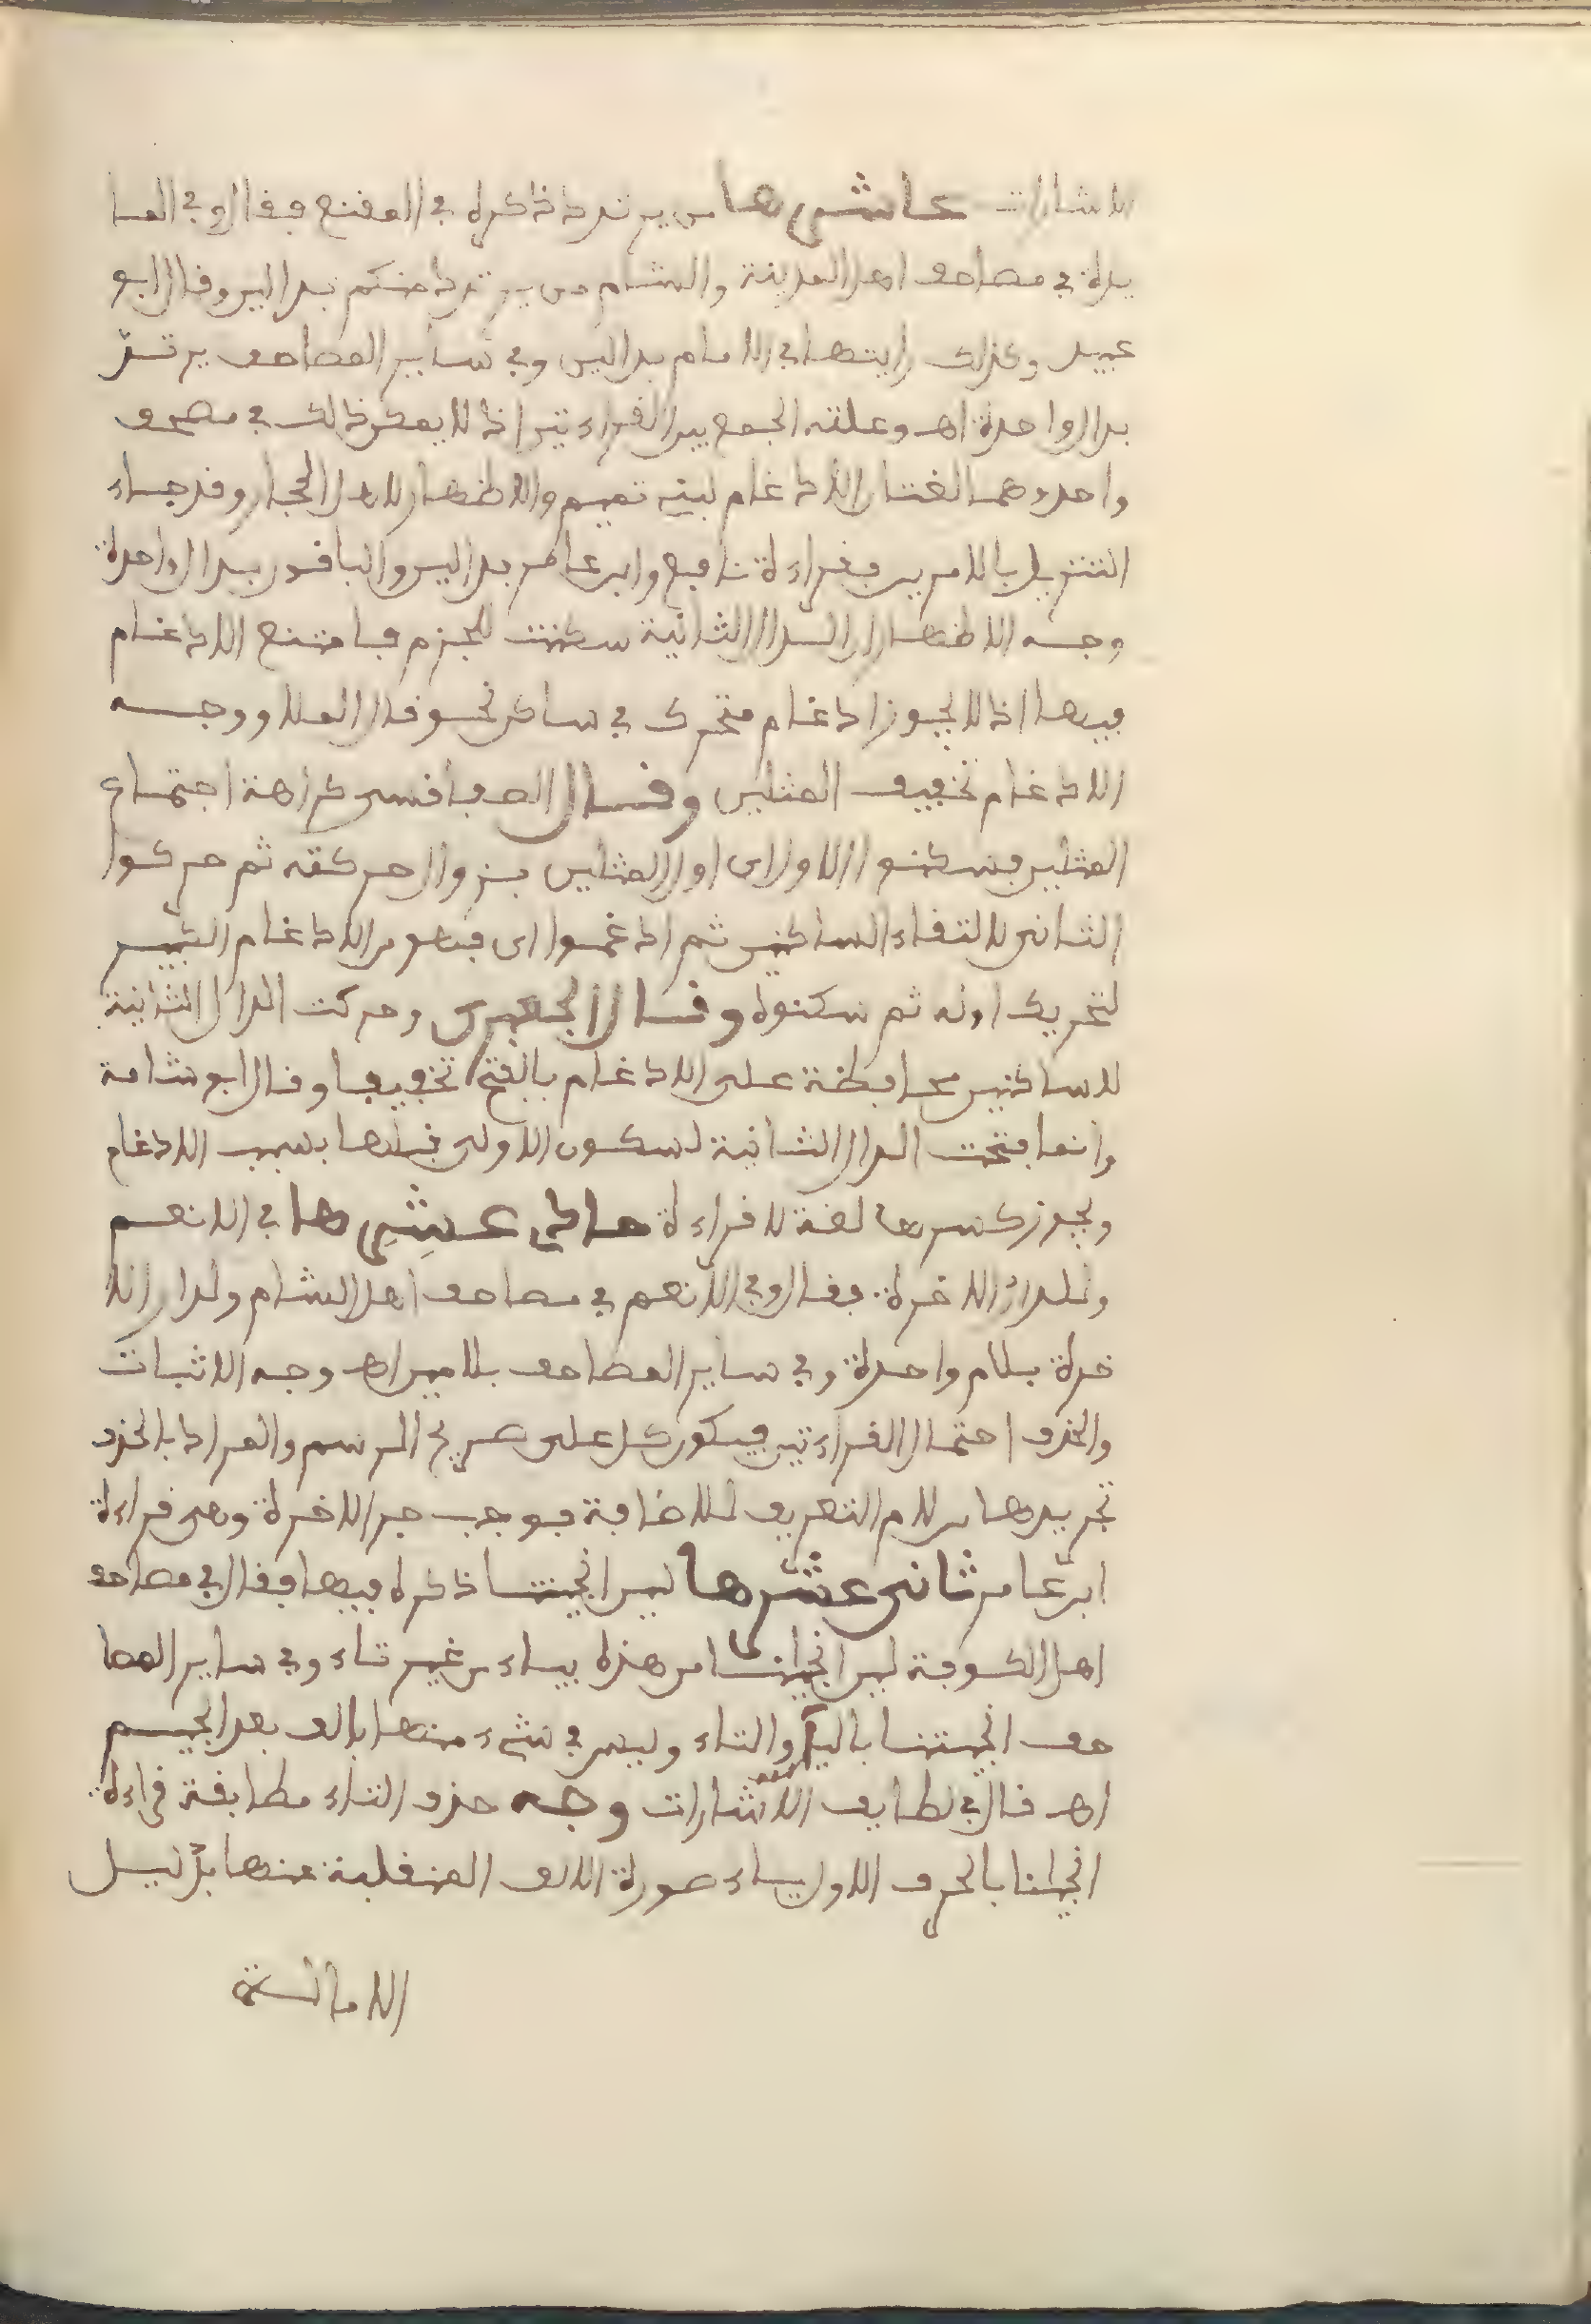 الاشارات عاشرها من يرتدد ذكره في المقنع فقال وفي الما
يدة في مصاحف اهل المدينة والشام من يرتدد منكم بدالين وقال ابو
عبيد وكذلك رايتها في الامام بدالين وفي ساير المصاحف يرتد
بدال واحدة اهـ وعلته الجمع بين القراءتين اذ لا يمكن ذالك في مصحف
واحد وهما لغتان الادغام لبني تميم والاظهار لاهل الحجاز وقد جاء
التنزيل بالامرين فقراءة نافع وابن عامر بدالين والباقون بدال واحدة
وجه الاظهار ان الدال الثانية سكنت للجزم فامتنع الادغام
فيها اذ لا يجوز ادغام متحرك في ساكن نحو قال الملا ووجه
الادغام تخفيف المثلين وقال الصفاقسي كراهة اجتماع
المثلين فسكنوا الاول اى اول المثلين بزوال حركته ثم حركوا
الثاني لالتقاء الساكنين ثم ادغموا اى فهو من الادغام الكبير
لتحريك اوله ثم سكنوه وقال الجعبري وحركت الدال الثانية
للساكنين محافظة على الادغام بالفتح تخفيفا وقال ابو شامة
وانما فتحت الدال الثانية لسكون الاولى قبلها بسبب الادغام
ويجوز كسرها لغة لا قراءة حادي عشرها في الانعم
وللدار الاخرة فقال وفي الانعم في مصاحف اهل الشام ولدار الا
خرة بلام واحدة وفي ساير المصاحف بلامين اهـ وجه الاثبات
والحذف احتمال القراءتين فيكون كل على صريح الرسم والمراد بالحذف
تجريدها من لام التعريف للاضافة فوجب جر الاخرة وهي قراءة
ابن عامر ثاني عشرها لين انجيتنا ذكره فيها فقال في مصاحف
اهل الكوفة لين انجينا من هذه بياء من غير تاء وفي ساير المصا
حف انجيتنا بالياء والتاء وليس في شيء منها بالف بعد الجيم
اهـ قال في لطايف الاشارات وجه حذف التاء مطابقة قراءة
انجينا بالحرف الاول بياء صورة الالف المنقلبة عنها بدليل
الامالة